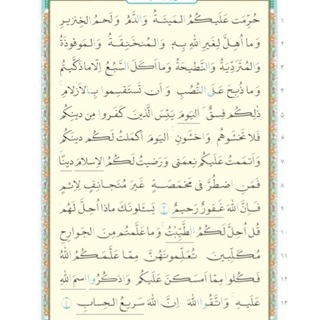 حُرِّمَت عَلَيكُمُ المَيتَةُ وَالدَّمُ وَلَحمُ الخِنزيرِ ١
وَما أُهِلَّ لِغَيرِ اللَّهِ بِهِ وَالمُنخَنِقَةُ وَالمَوقوذَةُ ٢
وَالمُتَرَدِّيَةُ وَالنَّطيحَةُ وَما أَكَلَ السَّبُعُ إِلّا ما ذَكَّيتُم ٣
وَما ذُبِحَ عَلَى النُّصُبِ وَأَن تَستَقسِموا بِالأَزلامِ ٤
ذٰلِكُم فِسقٌ اليَومَ يَئِسَ الَّذينَ كَفَروا مِن دينِكُم ٥
فَلا تَخشَوهُم وَاخشَونِ اليَومَ أَكمَلتُ لَكُم دينَكُم ٦
وَأَتمَمتُ عَلَيكُم نِعمَتي وَرَضيتُ لَكُمُ الإِسلامَ دينًا ٧
فَمَنِ اضطُرَّ في مَخمَصَةٍ غَيرَ مُتَجانِفٍ لِإِثمٍ ٨
فَإِنَّ اللَّهَ غَفورٌ رَحيمٌ يَسئَلونَكَ ماذا أُحِلَّ لَهُم ٩
قُل أُحِلَّ لَكُمُ الطَّيِّبٰتُ وَما عَلَّمتُم مِنَ الجَوارِحِ ١٠
مُكَلِّبينَ تُعَلِّمونَهُنَّ مِمّا عَلَّمَكُمُ اللَّهُ ١١
فَكُلوا مِمّا أَمسَكنَ عَلَيكُم وَاذكُرُوا اسمَ اللَّهِ ١٢
عَلَيهِ وَاتَّقُوا اللَّهَ إِنَّ اللَّهَ سَريعُ الحِسابِ ١٣